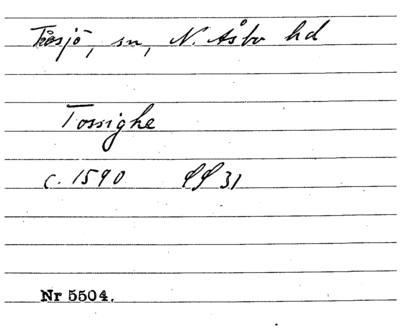 Tåsjö, sn, N. Åsbo hd
Tossighe
c. 1590 SS 31
Nr 5504.